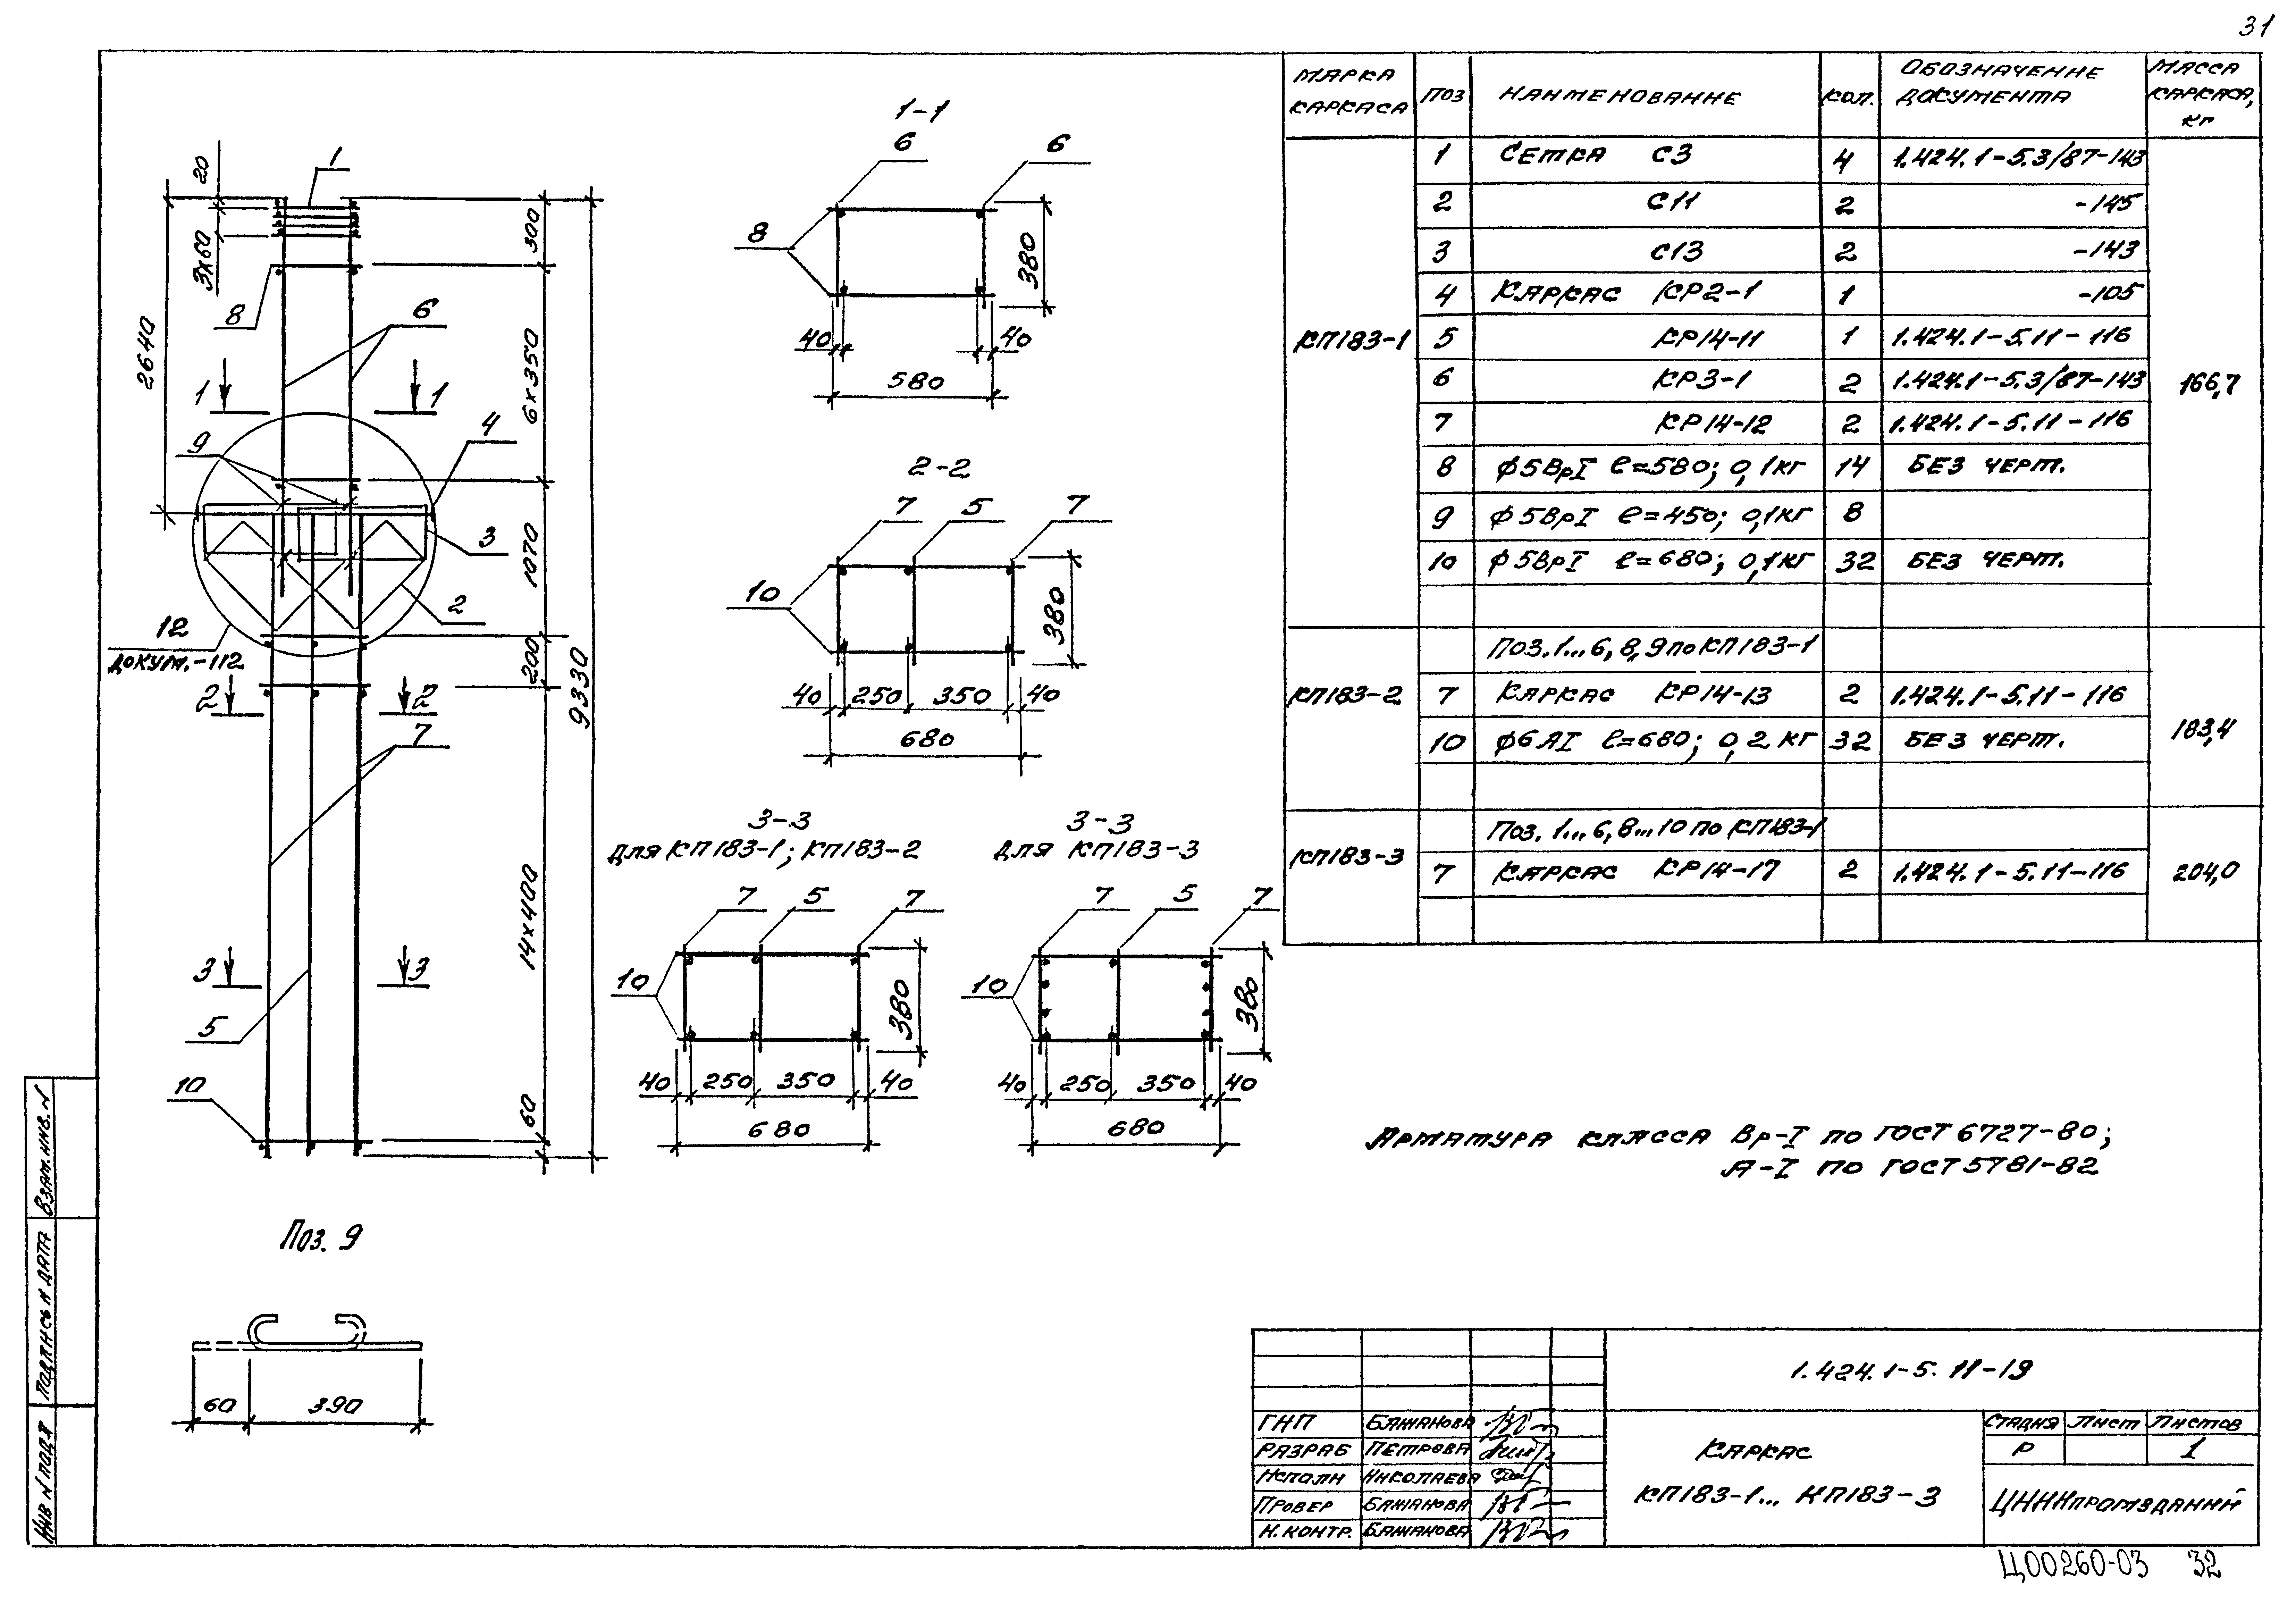 31
1-1
6 6
8
380
40 40
580
2-2
7 5 7
10
380
40 250 350 40
680
3-3
для КП183-1; КП183-2
7 5 7
10
380
40 250 350 40
680
3-3
для КП183-3
7 5 7
10
380
40 250 350 40
680
1
20
3х60
2640
8
6
1 1
9
4
3
2
12
докум.-112
2 2
7
3 3
5
10
300
6х350
1070
200
14х400
60
9330
Поз. 9
60 390
Марка каркаса Поз Наименование Кол. Обозначение документа Масса каркаса, кг
КП183-1 166,7
1 Сетка С3 4 1.424.1-5.3/87-143
2 С11 2 -145
3 С13 2 -143
4 Каркас КР2-1 1 -105
5 КР14-11 1 1.424.1-5.11-116
6 КР3-1 2 1.424.1-5.3/87-143
7 КР14-12 2 1.424.1-5.11-116
8 ϕ5ВрI ℓ=580; 0,1кг 14 Без черт.
9 ϕ5ВрI ℓ=450; 0,1кг 8
10 ϕ5ВрI ℓ=680; 0,1кг 32 Без черт.
КП183-2 183,4
Поз.1...6,8,9 по КП183-1
7 Каркас КР14-13 2 1.424.1-5.11-116
10 ϕ6АI ℓ=680; 0,2 кг 32 Без черт.
КП183-3 204,0
Поз. 1...6,8...10 по КП183-1
7 Каркас КР14-17 2 1.424.1-5.11-116
Арматура класса Вр-I по ГОСТ 6727-80;
А-I по ГОСТ 5781-82
1.424.1-5.11-19
ГИП Бажанова
Разраб Петрова
Исполн Николаева
Провер Бажанова
Н.контр. Бажанова
Каркас
КП183-1... КП183-3
Стадия Лист Листов
Р 1
ЦНИИпромзданий
Инв N подл Подпись и дата Взам.инв.N
Ц00260-03 32